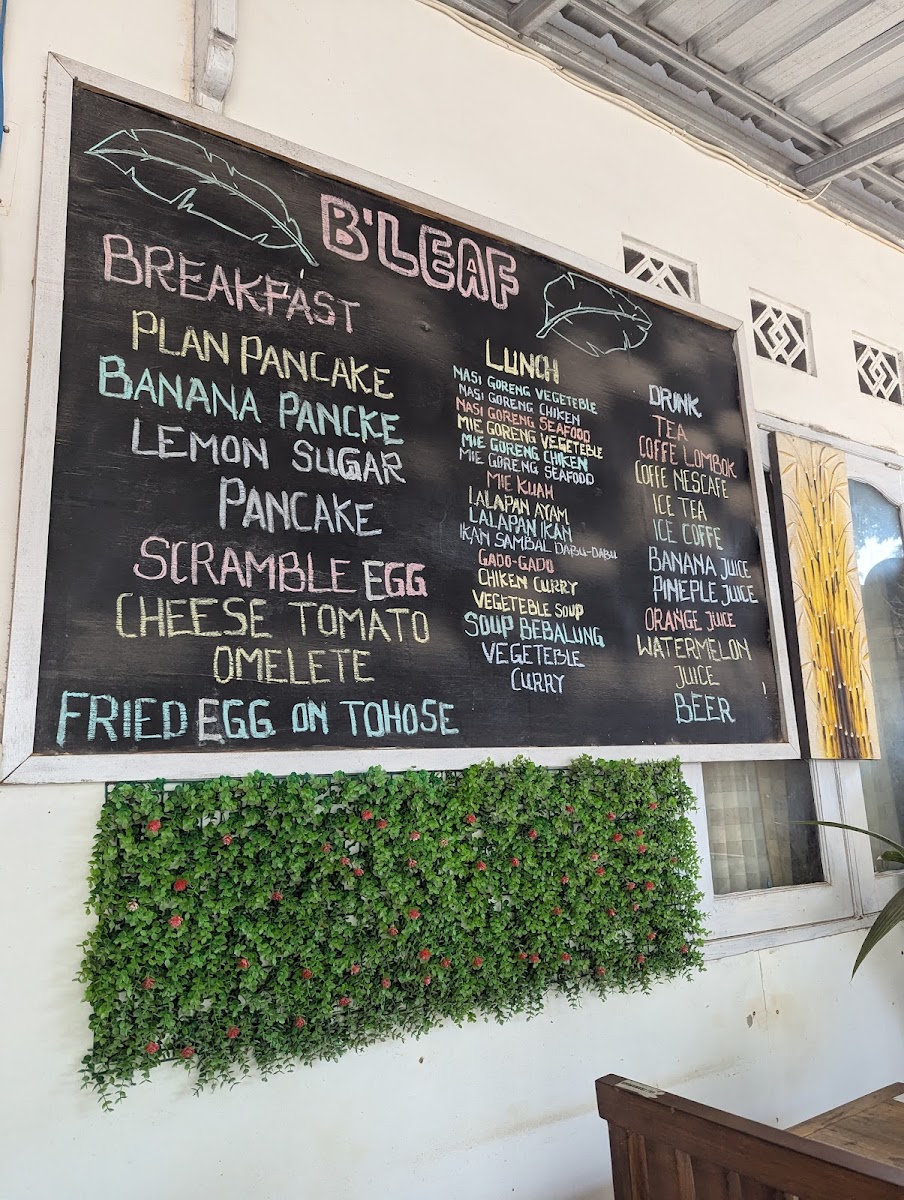 B'LEAF
BREAKFAST
PLAN PANCAKE
BANANA PANCKE
LEMON SUGAR
PANCAKE
SCRAMBLE EGG
CHEESE TOMATO
OMELETE
FRIED EGG ON TOHOSE
LUNCH
NASI GORENG VEGETEBLE
NASI GORENG CHIKEN
NASI GORENG SEAFOOD
MIE GORENG VEGETEBLE
MIE GORENG CHIKEN
MIE GORENG SEAFOOD
MIE KUAH
LALAPAN AYAM
LALAPAN IKAN
IKAN SAMBAL DABU-DABU
GADO-GADO
CHIKEN CURRY
VEGETEBLE SOUP
SOUP BEBALUNG
VEGETEBLE
CURRY
DRINK
TEA
COFFE LOMBOK
COFFE NESCAFE
ICE TEA
ICE COFFE
BANANA JUICE
PINEPLE JUICE
ORANGE JUICE
WATERMELON
JUICE
BEER